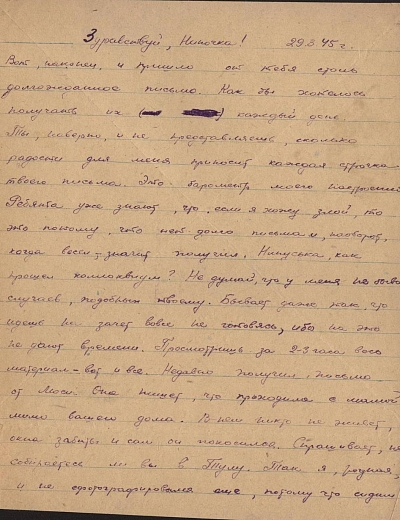 Здравствуй, Ниночка! 29.3.45 г.
Вот, наконец, и пришло от тебя столь
долгожданное письмо. Как бы хотелось
получать их каждый день.
Ты, наверно, и не представляешь, сколько
радости для меня приносит каждая строчка
твоего письма. Это барометр моего настроения
Ребята уже знают, что если я хожу злой, то
это потому, что нет долго письма и, наоборот,
когда весел - значит получил. Нинуська, как
прошел коллоквиум? Не думай, что у меня не быва
случаев, подобных твоему. Бывает даже так что
идешь на зачет вовсе не готовясь, ибо на это
не дают времени. Просмотришь за 2-3 часа весь
материал - вот и все. Недавно получил письмо
от Люси. Она пишет, что проходила с мамой
мимо вашего дома. В нем никто не живет,
окна забиты и сам он покосился. Спрашивает, не
собираетесь ли вы в Тулу. Так я, родная,
и не сфотографировался еще, потому что сидим